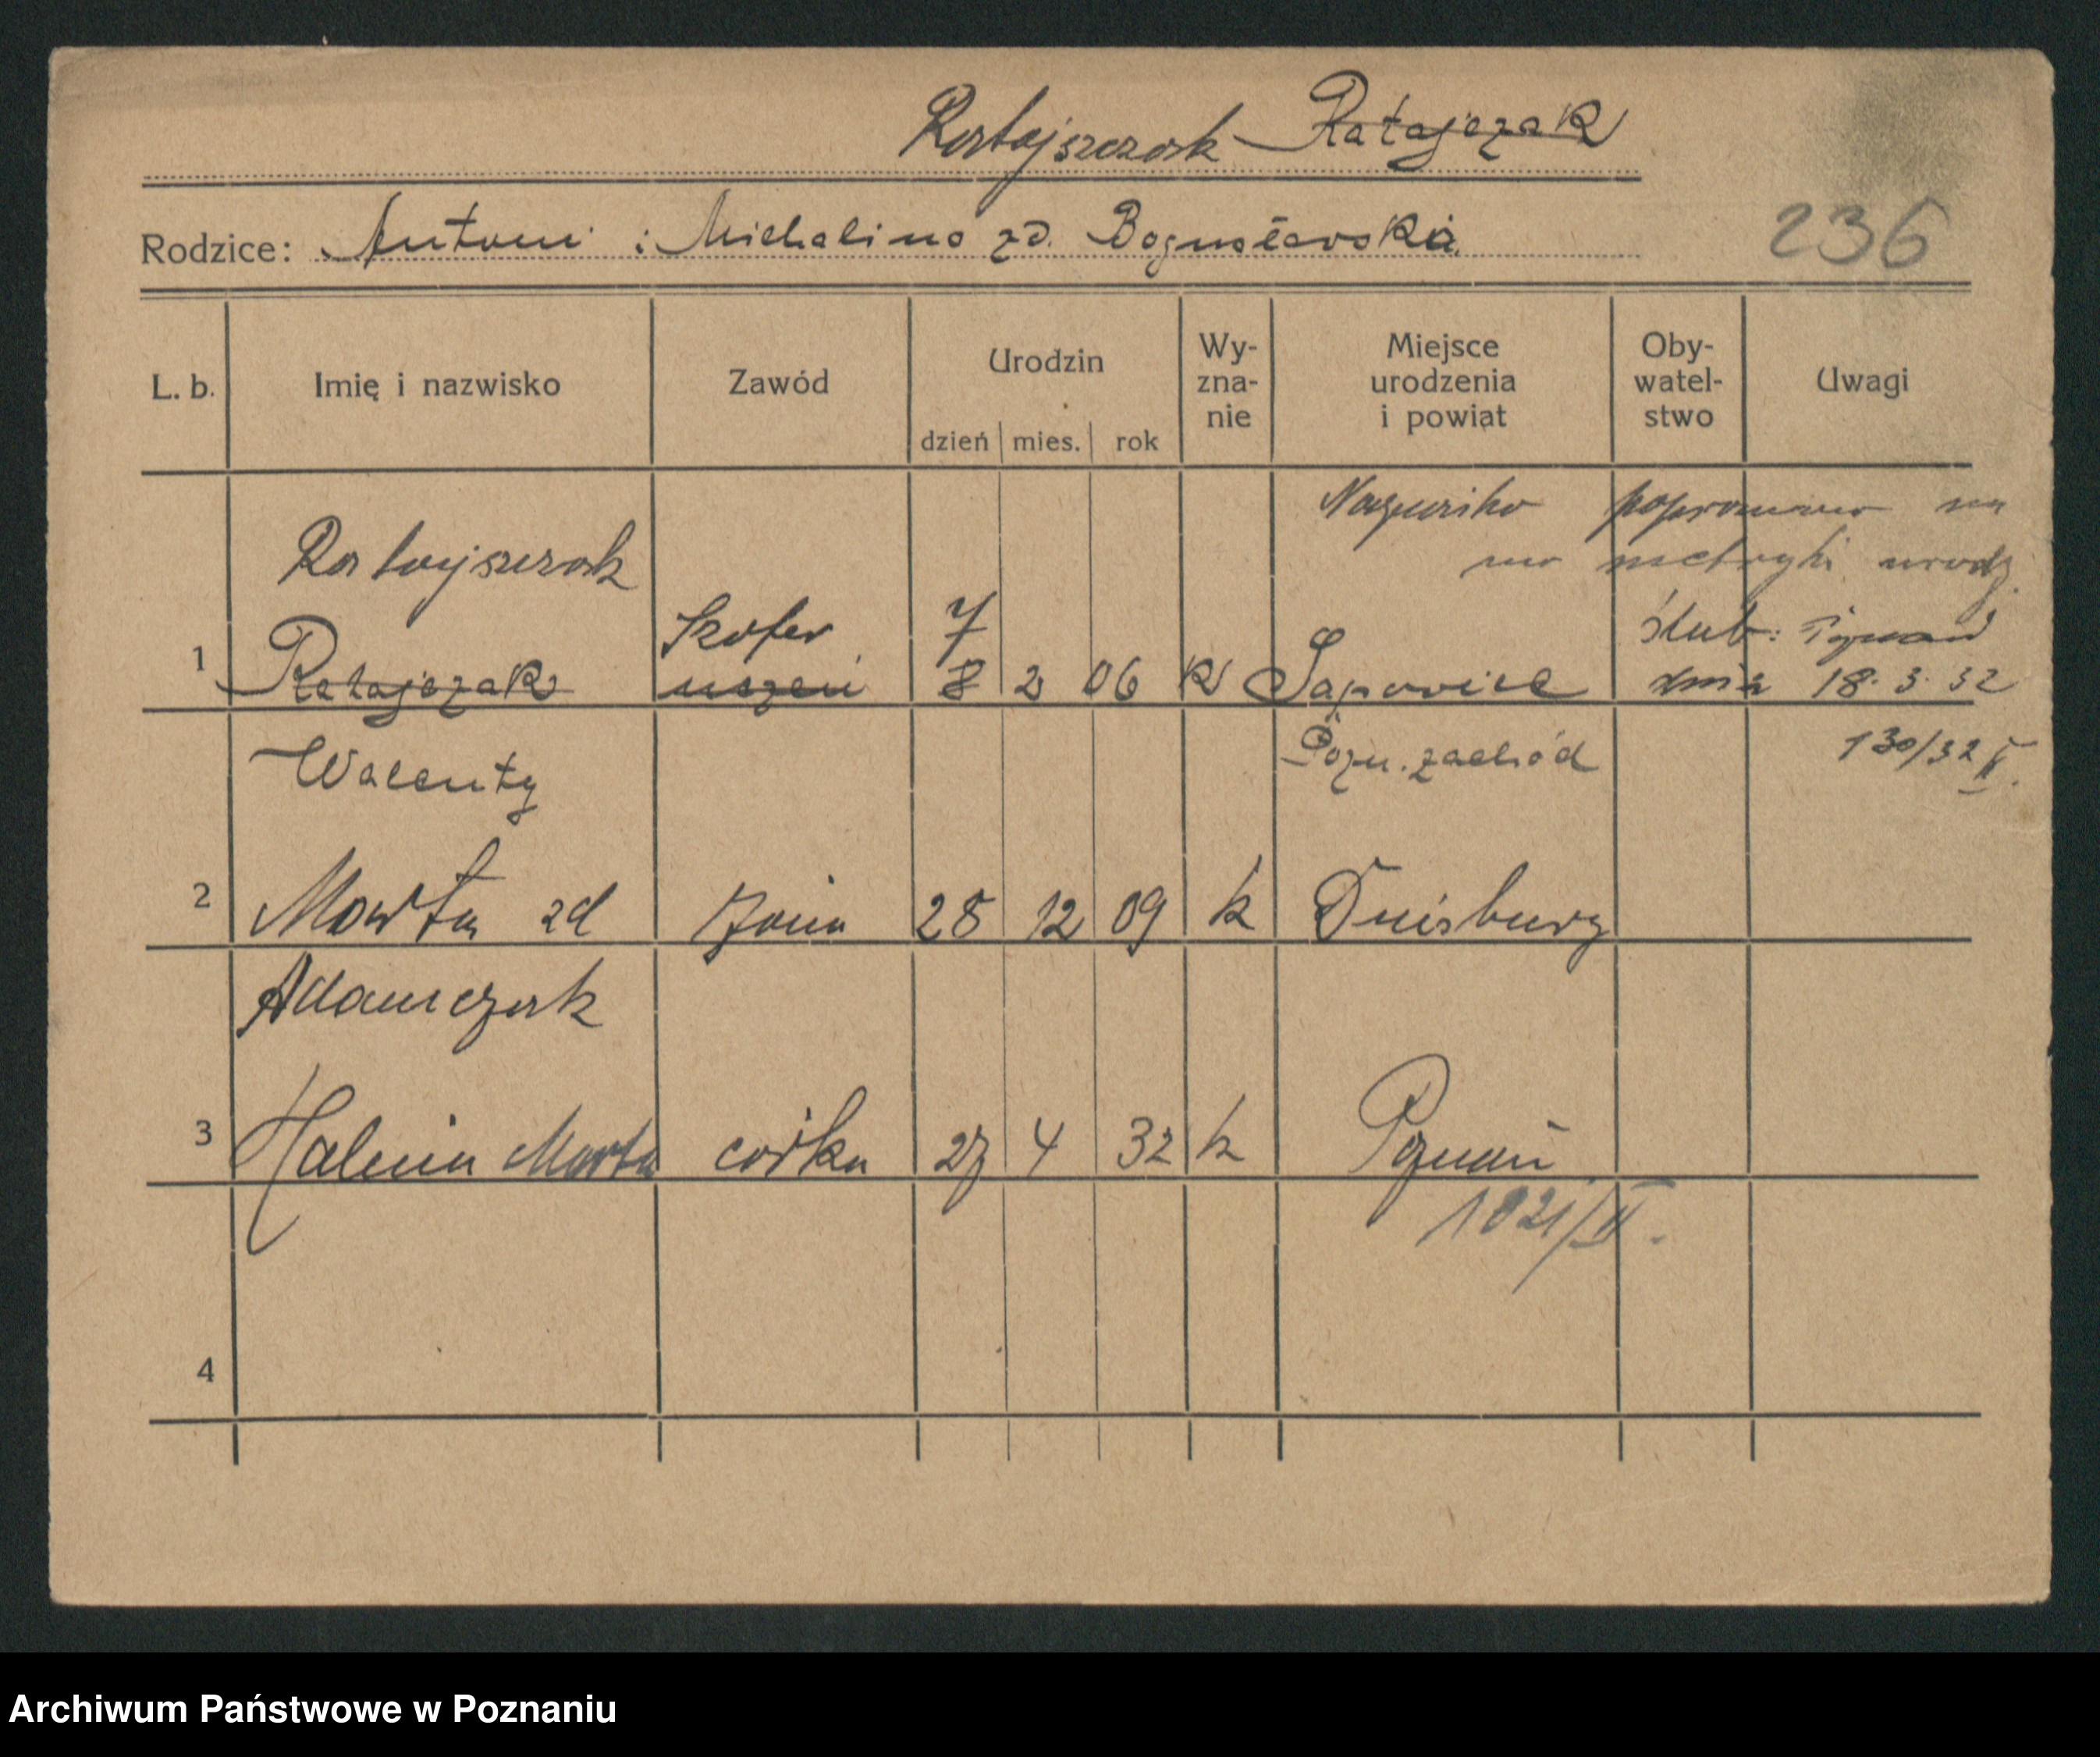 Ratajszczak Ratajczak
Rodzice: Antoni i Michalina zd. Bogusławska
236
L. b. Imię i nazwisko Zawód Urodzin Wy- zna- nie Miejsce urodzenia i powiat Oby- watel- stwo Uwagi
dzień mies. rok
Nazwisko poprawiono na
Ratajszczak metryki urodz.
Szofer 7 Ślub: Poznań
1 Ratajczak uczeń 8 2 06 k Sapowice dnia 18. 3. 32
Walenty Pozn. zachód 130/32 II.
2 Marta zd żona 28 12 09 k Duisburg
Adamczak
3 Halina Marta córka 27 4 32 k Poznań
1821/II.
4
Archiwum Państwowe w Poznaniu